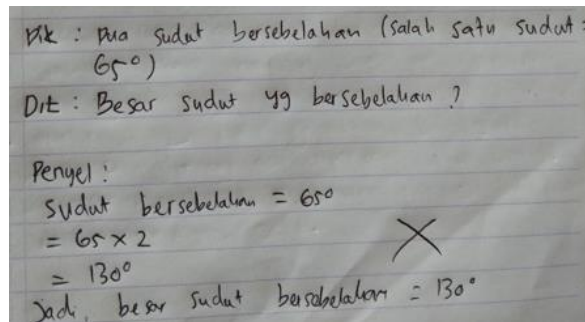 Dik : Dua sudut bersebelahan (salah satu sudut =
65°)
Dit : Besar sudut yg bersebelahan ?
Penyel :
Sudut bersebelahan = 65°
= 65 × 2
= 130°
Jadi, besar sudut bersebelahan = 130°